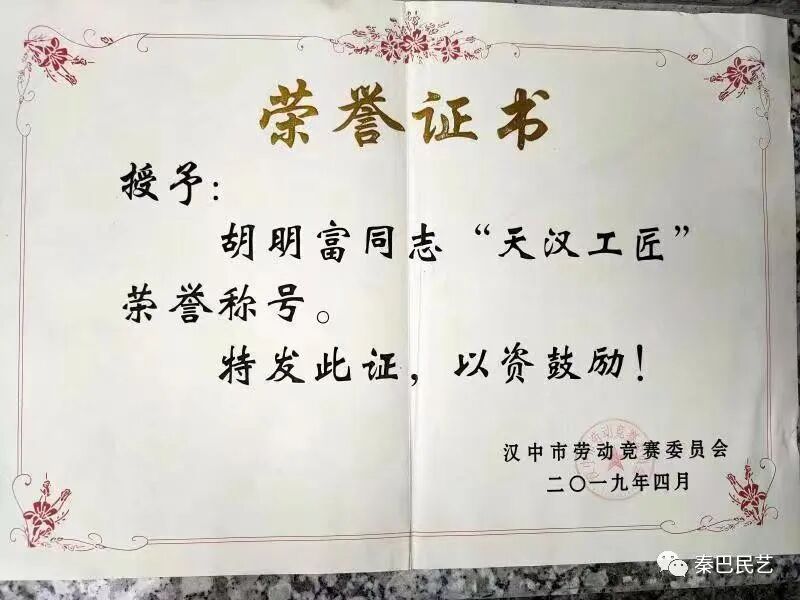 荣誉证书
授予：
胡明富同志“天汉工匠”
荣誉称号。
特发此证，以资鼓励！
汉中市劳动竞赛委员会
二〇一九年四月
秦巴民艺